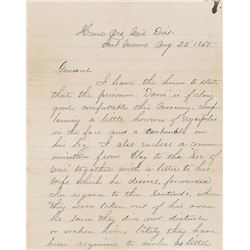 Head Qrs. Mil. Dist.
Fort Monroe Aug 22 1865.
General
I have the honor to state
that the prisoner "Davis" is feeling
quite comfortable this morning. Com-
plaining a little however of Erysipelas
in the face and a carbuncle on
his leg. I also enclose a commu-
nication from Clay to the Sec of
War together with a letter to his
wife which he desires forwarded.
In regard to the sentinels when
they were taken out of his room
he said they did not disturb
or waken him, lately they have
been required to make as little